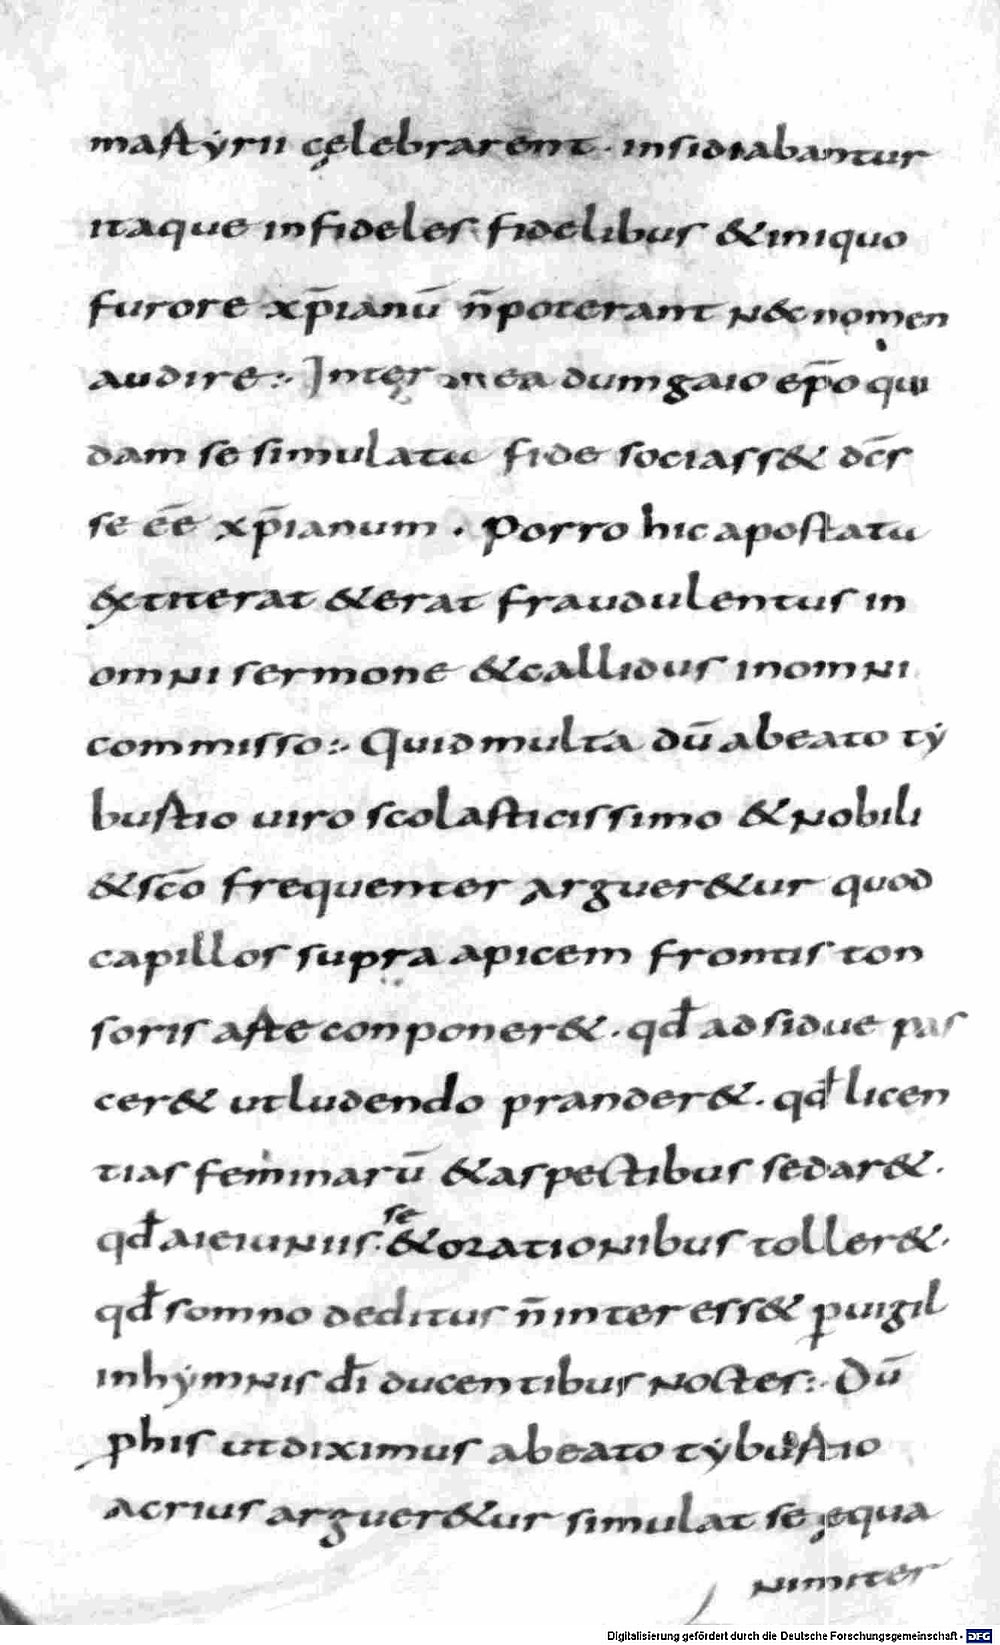 mastyrii cęlebrarent · insidiabantur
itaque infideles fidelibus & iniquo
furore xp̄ianū n̄ poterant n&c nomen
audire :· Inter ea dum gaio ep̄o qui
dam se simulatu fide sociass& dc̄s
se eē xp̄ianum . Porro hic apostatu
extiterat & erat fraudulentus in
omni sermone & callidus in omni
commisso :· Quid multa dū a beato ty
bustio uiro scolasticissimo & nobili
& sc̄o frequenter arguer&ur quod
capillos supra apicem frontis ton
soris aste conponer& . qđ adsidue pas
cer& ut ludendo prander& . qđ licen
tias feminarū & aspectibus sedar& .
se
qđ a ieiuniis · & orationibus toller& .
qđ somno deditus n̄ interess& ꝑuigil
in hymnis dī ducentibus noctes :· Dū
phis ut diximus a beato tybustio
acrius arguer&ur simulat se ęqua
nimiter
Digitalisierung gefördert durch die Deutsche Forschungsgemeinschaft - DFG